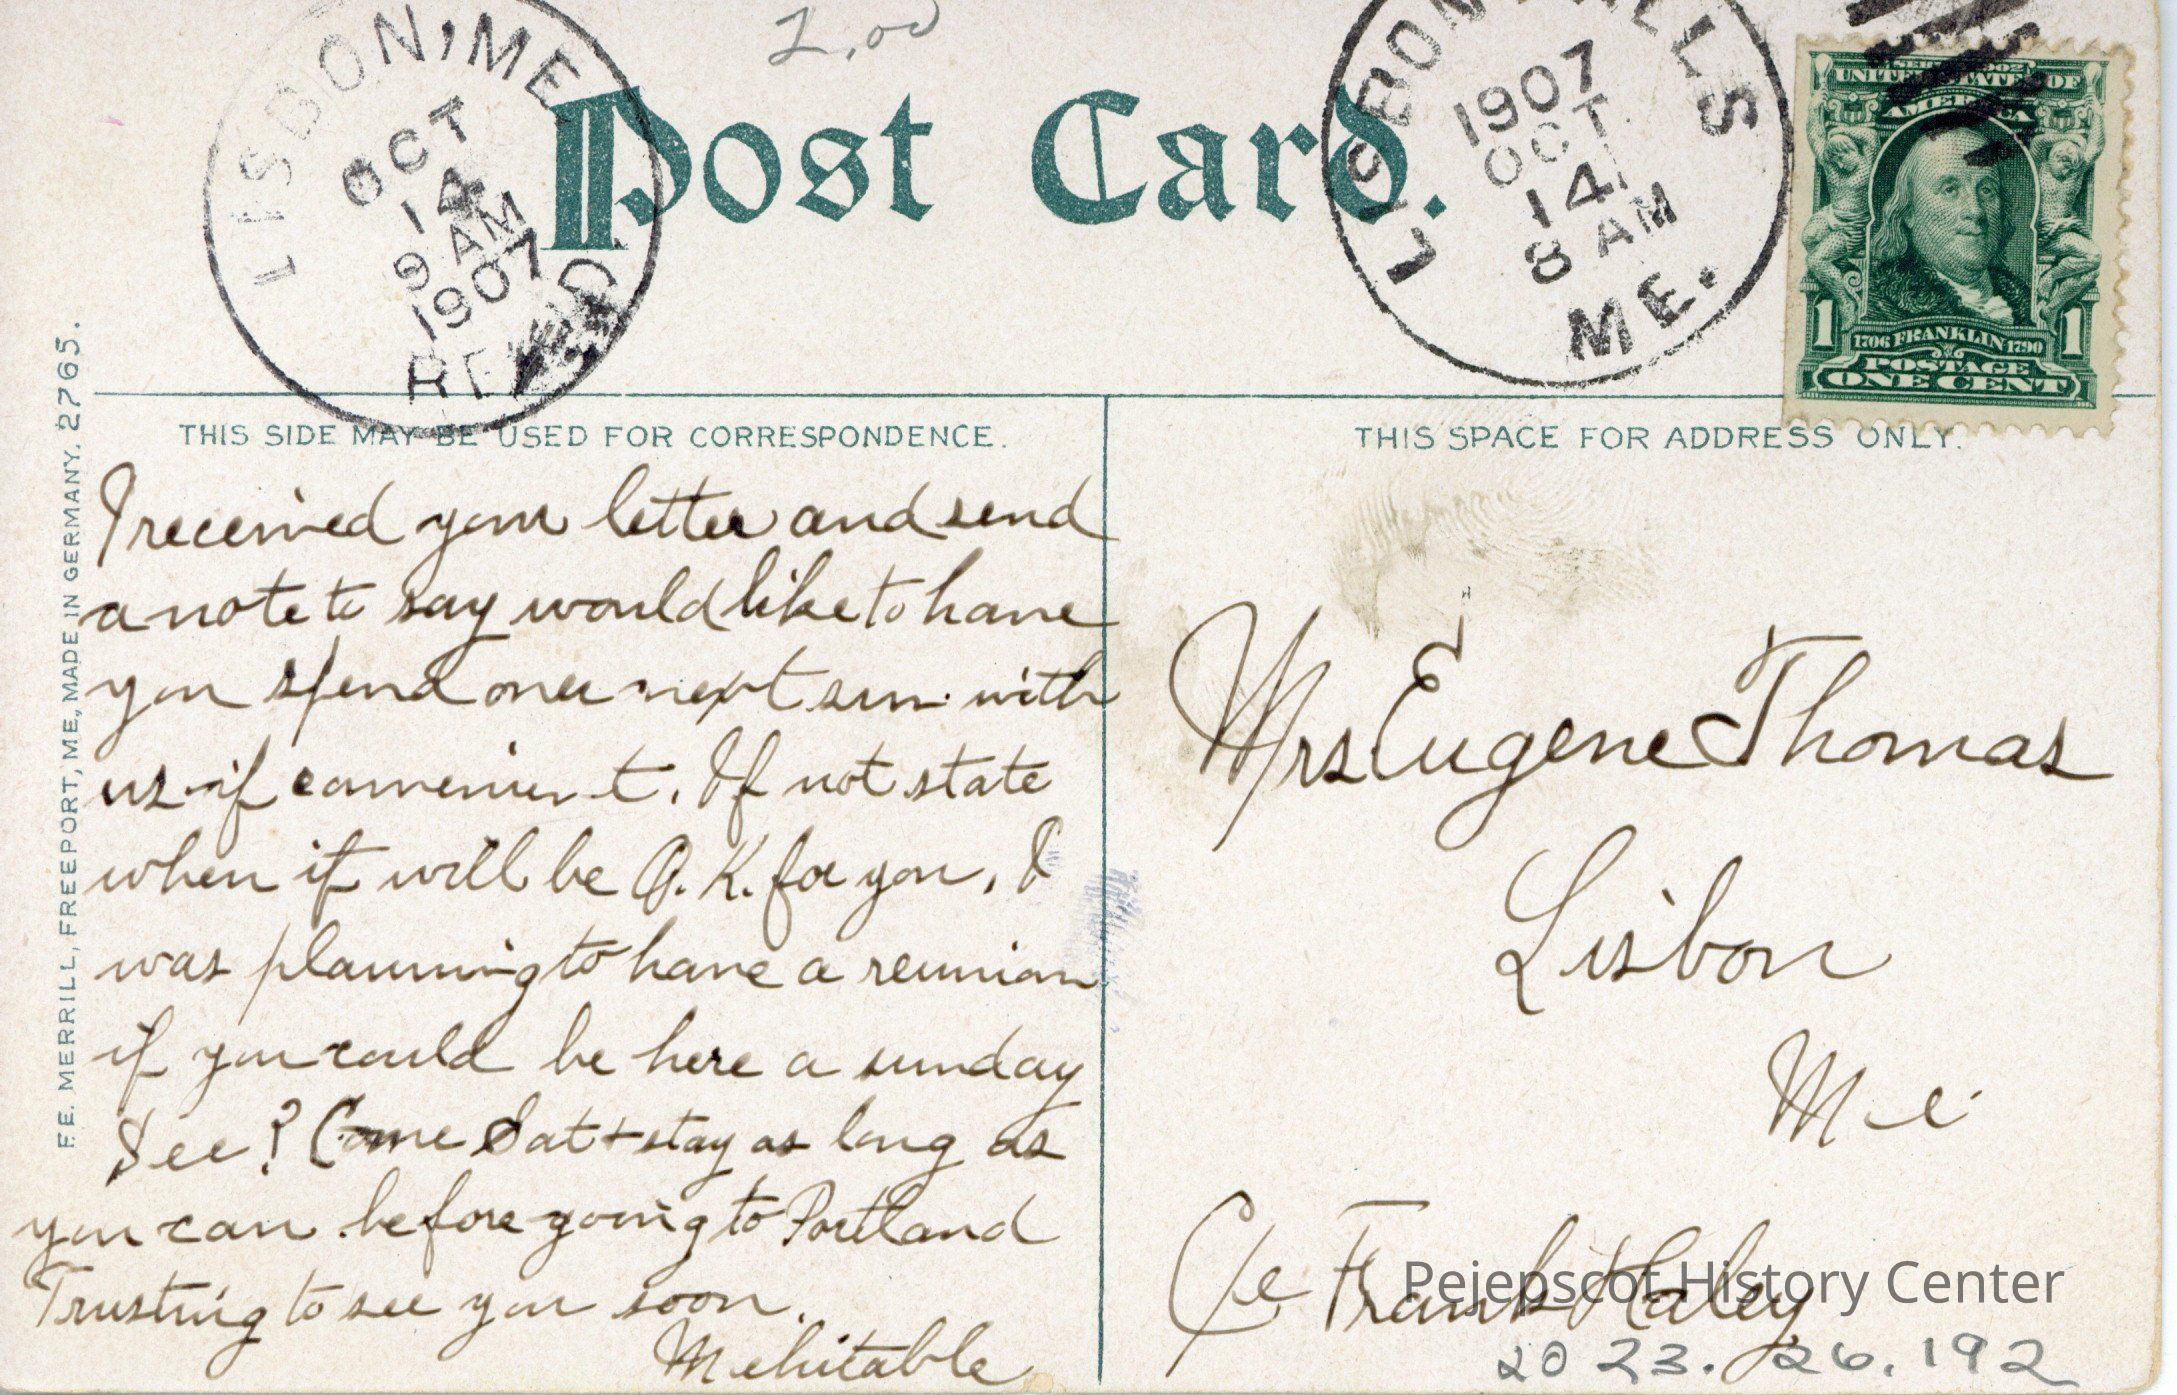 2.00
LISBON, ME.
OCT
14
9 AM
1907
REC'D
Post Card.
LISBON FALLS
1907
OCT
14
8 AM
ME.
SERIES 1902
UNITED STATES OF
AMERICA
1 1
1706 FRANKLIN 1790
POSTAGE
ONE CENT
F.E. MERRILL, FREEPORT, ME., MADE IN GERMANY. 2765.
THIS SIDE MAY BE USED FOR CORRESPONDENCE.
I received your letter and send
a note to say would like to have
you spend over next sun. with
us if convenient. If not state
when it will be O.K. for you, I
was planning to have a reunion
if you could be here a sunday
See? Come Sat + stay as long as
you can before going to Portland
Trusting to see you soon.
Mehitable
THIS SPACE FOR ADDRESS ONLY.
Mrs Eugene Thomas
Lisbon
Me.
C/o Frank Haley
Pejepscot History Center
2023.26.192